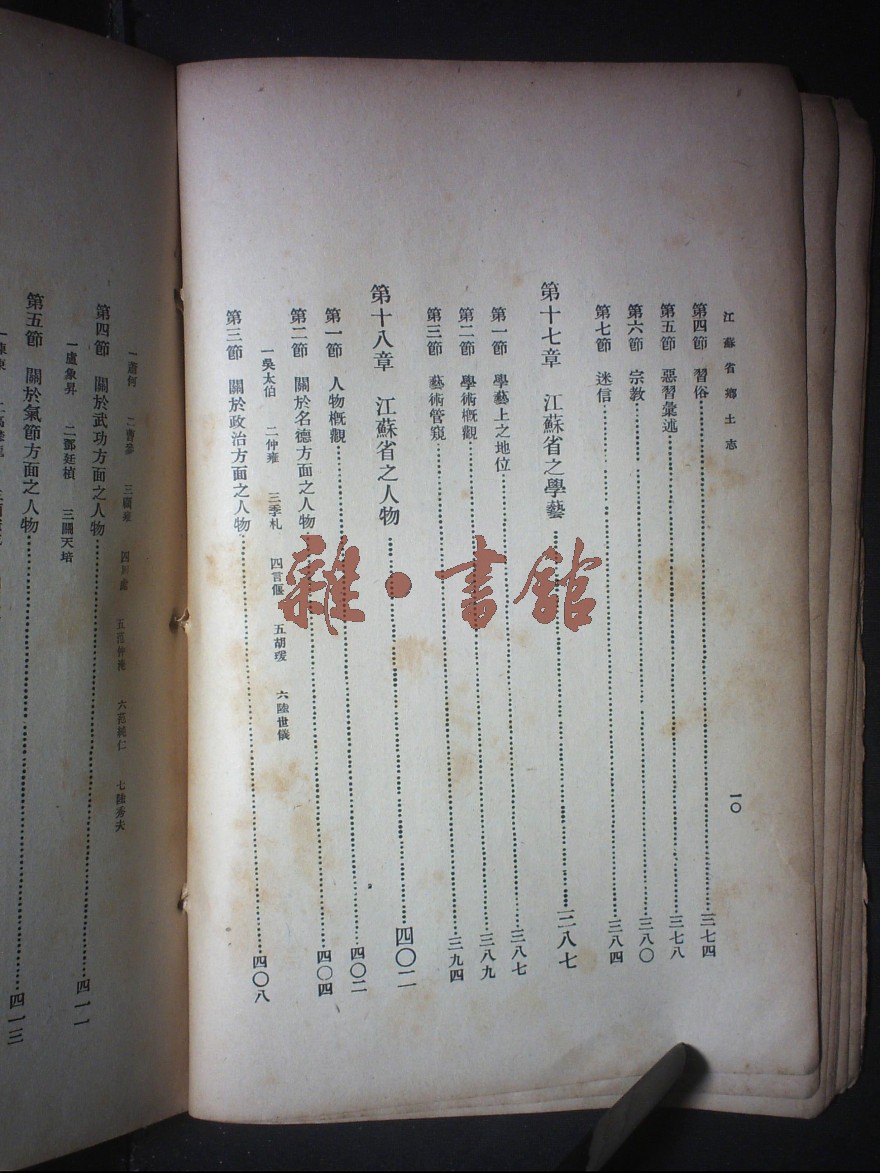 江蘇省鄉土志
一〇
第四節 習俗……三七四
第五節 惡習彙述……三七八
第六節 宗教……三八〇
第七節 迷信……三八四
第十七章 江蘇省之學藝……三八七
第一節 學藝上之地位……三八七
第二節 學術概觀……三八九
第三節 藝術管窺……三九四
第十八章 江蘇省之人物……四〇二
第一節 人物概觀……四〇二
第二節 關於名德方面之人物……四〇四
一吳太伯 二仲雍 三季札 四言偃 五胡瑗 六陸世儀
第三節 關於政治方面之人物……四〇八
一蕭何 二曹參 三顧雍 四周處 五范仲淹 六范純仁 七陸秀夫
第四節 關於武功方面之人物……四一一
一盧象昇 二鄧廷楨 三關天培
第五節 關於氣節方面之人物……四一三
雜·書館